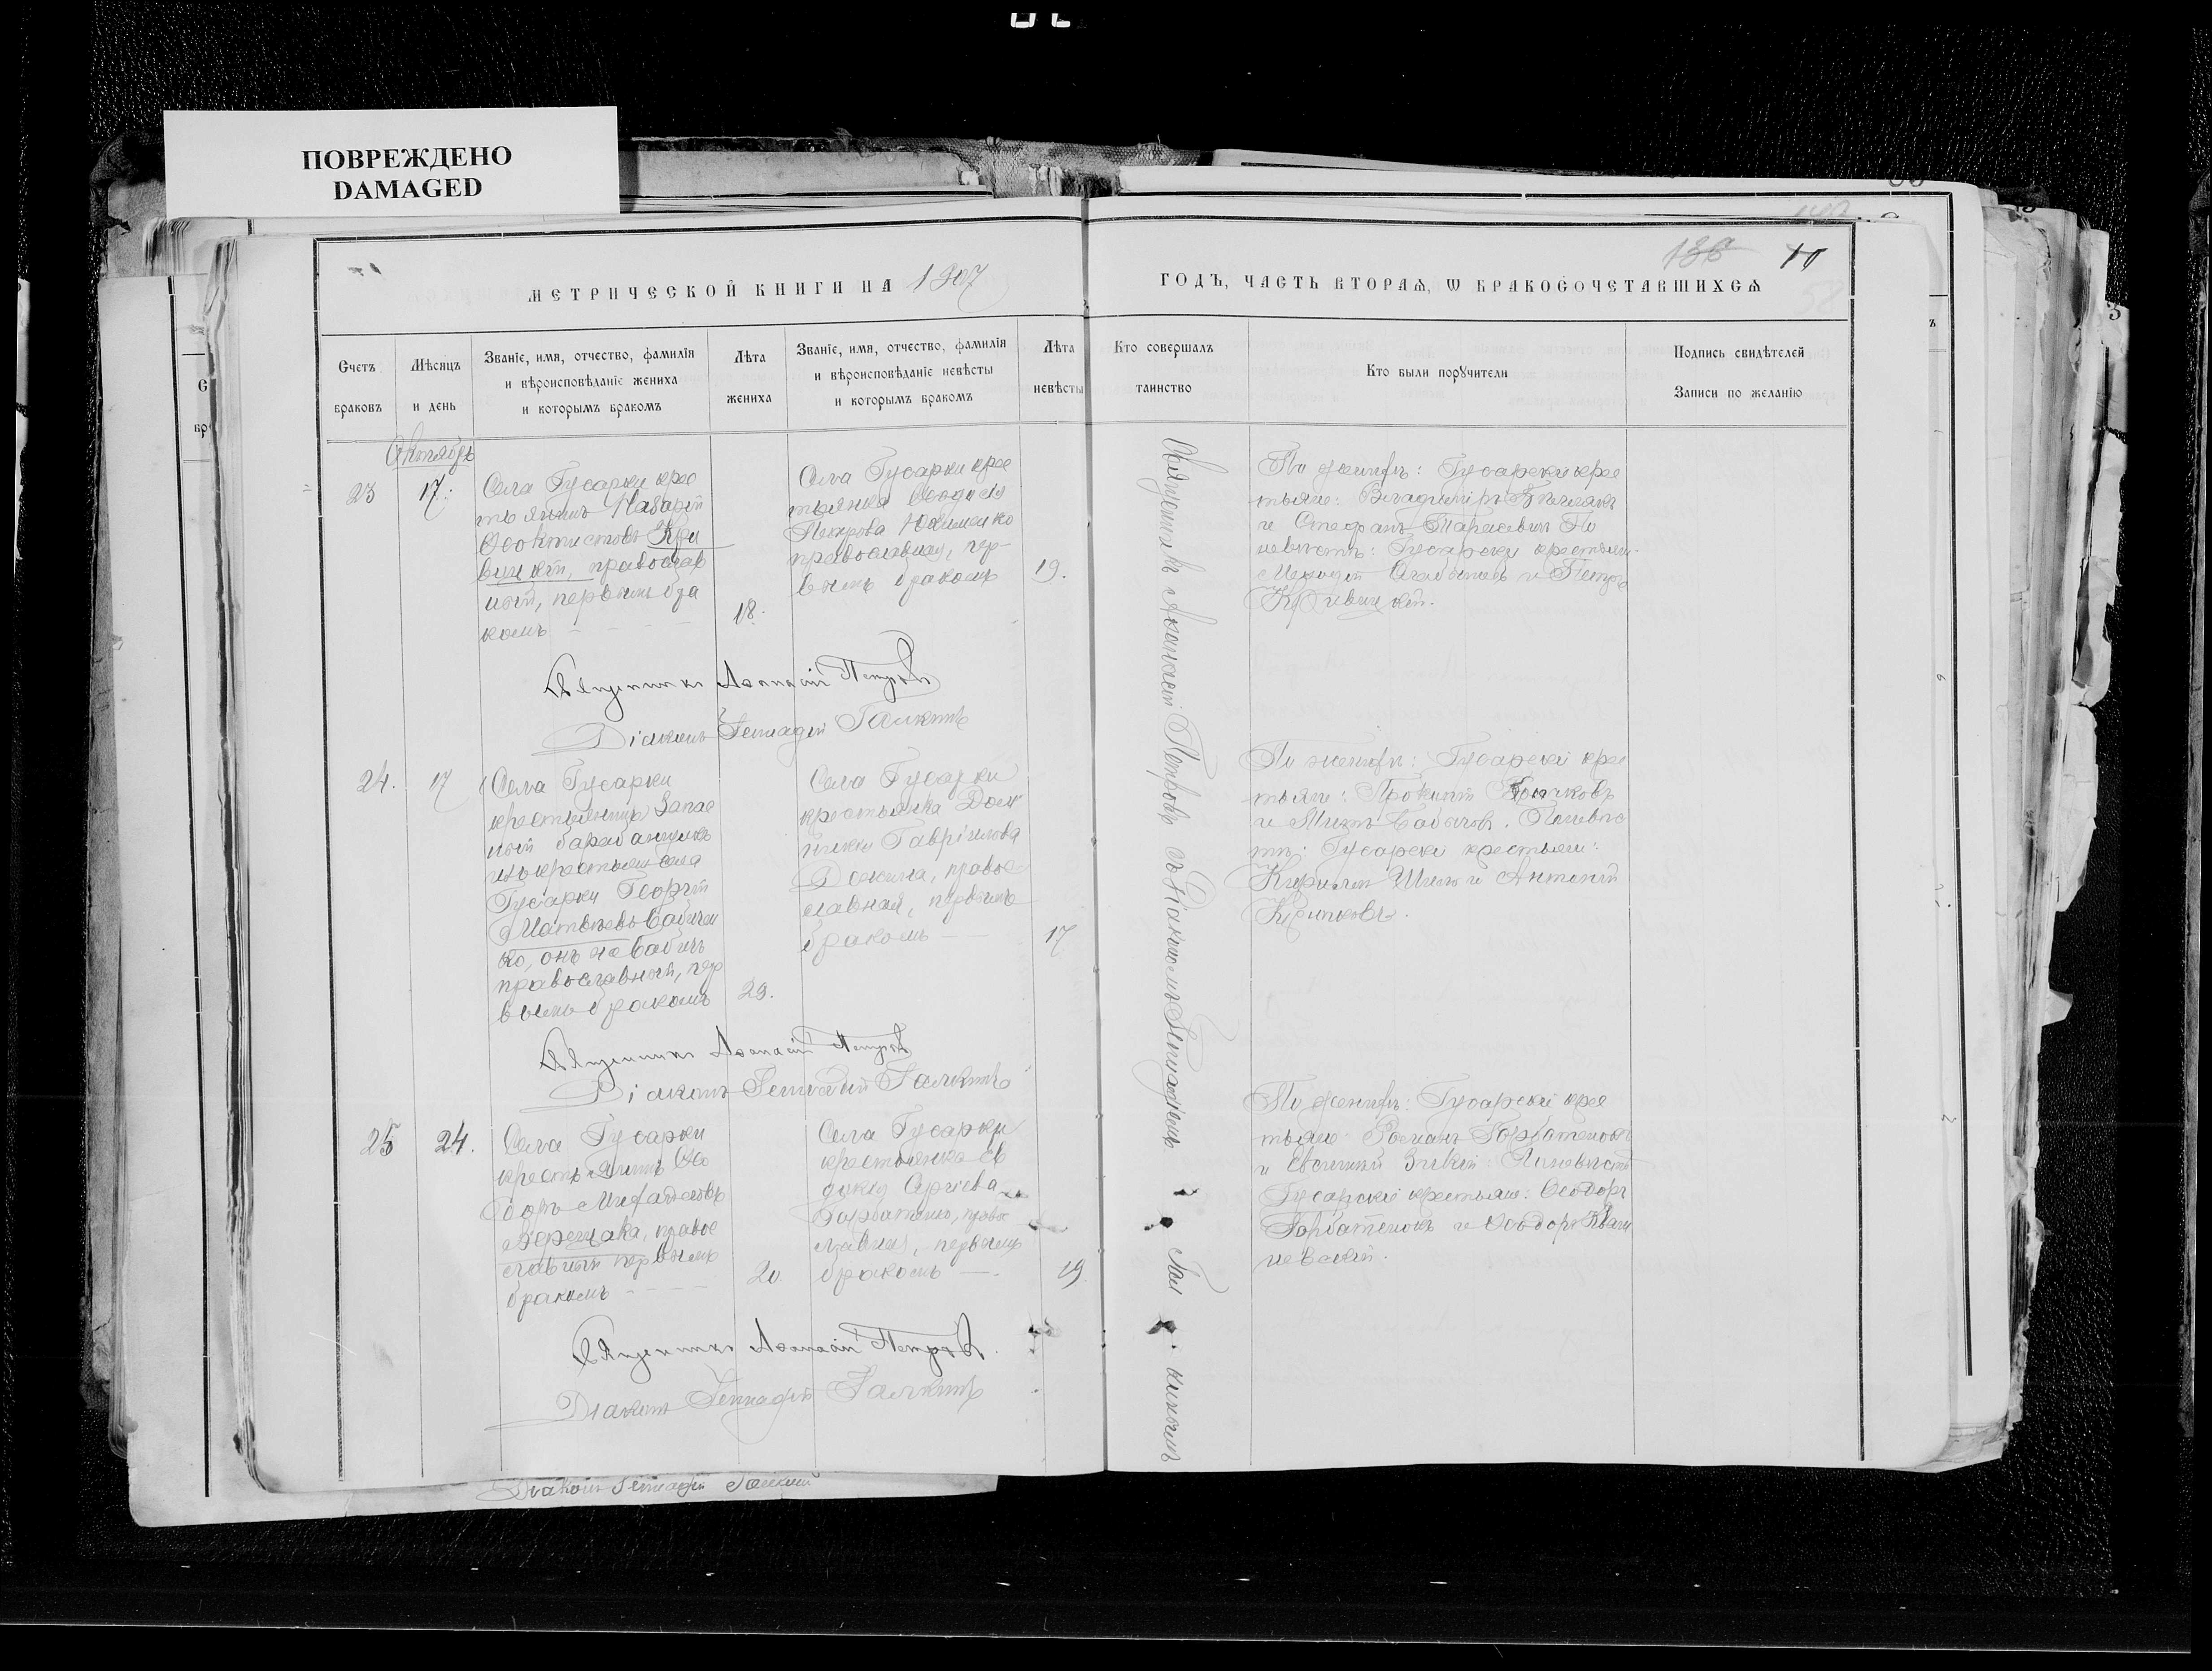 ПОВРЕЖДЕНО
DAMAGED
136 10
МЕТРИЧЕСКОЙ КНИГИ НА 1907
ГОДЪ, ЧАСТЬ ВТОРАЯ, Ѡ БРАКОСОЧЕТАВШИХСЯ
Счетъ
браковъ
Мѣсяцъ
и день
Званіе, имя, отчество, фамилія
и вѣроисповѣданіе жениха
и которымъ бракомъ
Лѣта
жениха
Званіе, имя, отчество, фамилія
и вѣроисповѣданіе невѣсты
и которымъ бракомъ
Лѣта
невѣсты
Кто совершалъ
таинство
Кто были порꙋчители
Подпись свидѣтелей
Записи по желанію
Октябрь
23
17.
Села Гусарки крес
тьянинъ Назарій
Ѳеоктистовъ Кри
вицкій, православ
ный, первымъ бра
комъ
18.
Села Гусарки крес
тьянка Ѳеодосія
Петрова Юхименко
православная, пер-
вымъ бракомъ
19.
По женихѣ: Гусарскіе крес
тьяне: Владиміръ
и Стефанъ Тарасевичъ По
невѣстѣ: Гусарскіе крестьяне
и Петръ
Кривицкій.
Священникъ Аѳанасій Петровъ
Діаконъ Геннадій Галкинъ
24.
17
Села Гусарки
крестьянинъ запас
ной барабанщикъ
изъ крестьян села
Гусарки Георгій
Матвѣевъ Бабичен
ко, онъ же Бабичъ
православный, пер
вымъ бракомъ
29.
Села Гусарки
крестьянка Дом
никія Гавріилова
Доскина, правос
славная, первымъ
бракомъ
17
По женихѣ: Гусарскіе крес
тьяне: Прокопій
и . По невѣс
тѣ: Гусарскіе крестьяне:
Кириллъ Шило и Антоній
Крипковъ.
Священникъ Аѳанасій Петровъ
Діаконъ Геннадій Галкинъ
25
24.
Села Гусарки
крестьянинъ Ѳео
доръ Михайловъ
Верещака, правос
славный первымъ
бракомъ
20
Села Гусарки
крестьянка Ев
докія Сергіева
Горбатенко, право
славная, первымъ
бракомъ
19
По женихѣ: Гусарскіе крес
тьяне Романъ Горбатенко
и Евѳимій Зикій. По невѣстѣ
Гусарскіе крестьяне: Ѳеодоръ
Горбатенокъ и Ѳеодоръ Квач
невскій.
Священникъ Аѳанасій Петровъ
Діаконъ Геннадій Галкинъ
Священникъ Аѳанасій Петровъ съ Діакономъ Геннадіемъ Гал кинымъ
Діаконъ Геннадій Галкинъ